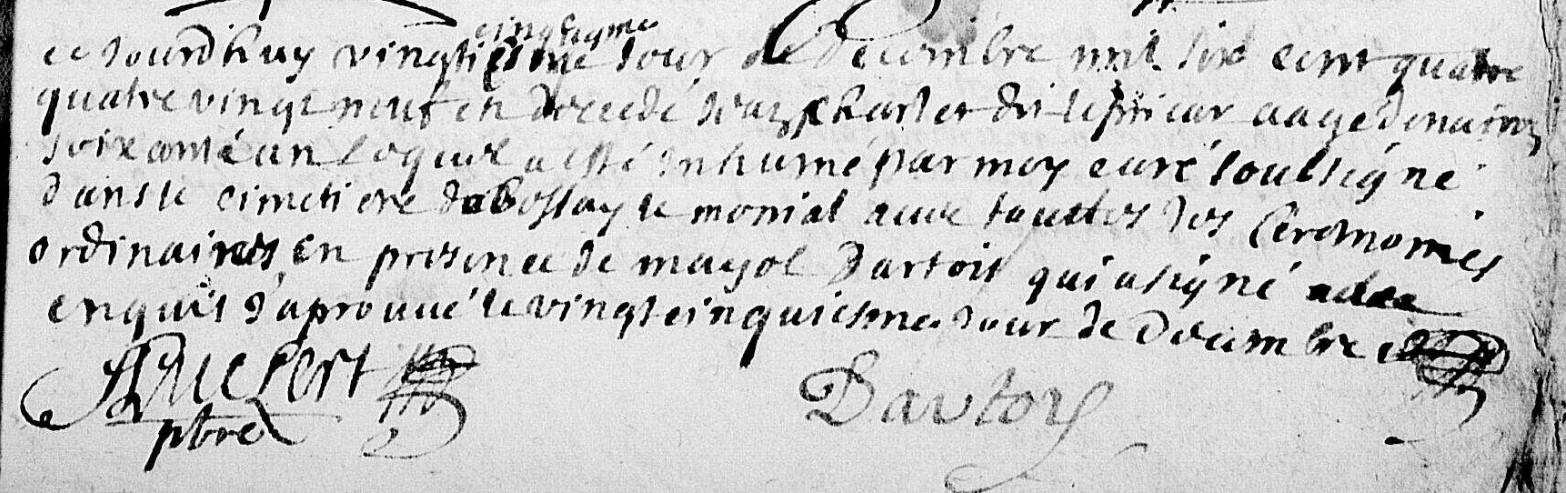 cinquiyme
ce Jourdhuy vingtiesme Jour de Decembre mil six cent quatre
quatre vingt neuf en decedé Charles dit aage denuiron
soixante an Lequel a esté Inhumé par moy curé soubsigné
dans le cimetiere de Bossay le monial auec touttes Les Ceremonies
ordinaires, en presence de mayol Dartois qui a signé
enquis J'aprouué le vingt cinquiesme Jour de Decembre
pbre
Dartoys